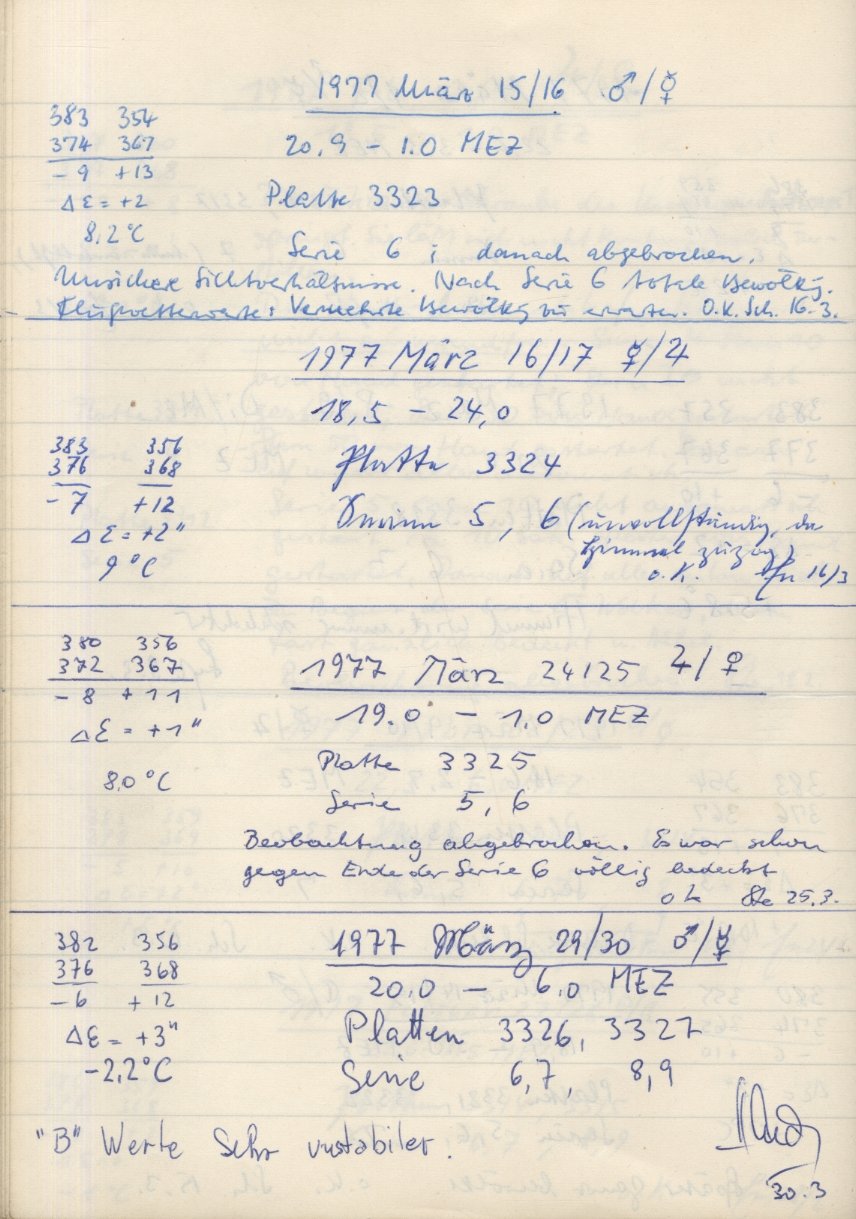 1977 März 15/16 ♂/☿
383 354
374 367
20.9 - 1.0 MEZ
- 9 +13
Δε = +2
Platte 3323
8,2°C
Serie 6 ; danach abgebrochen.
Unsichere Sichtverhältnisse. Nach Serie 6 totale Bewölkg.
Flugwetterwarte: Vermehrte Bewölkg zu erwarten. O.K. Sch. 16.3.
1977 März 16/17 ☿/♃
18,5 - 24,0
383 356
376 368
Platte 3324
- 7 +12
5, 6 (unvollständig, da
Δε = +2"
Himmel zuzog)
9°C
o.K. 16/3
380 356
372 367
1977 März 24/25 ♃/♀
- 8 + 11
19.0 - 1.0 MEZ
Δε = +1"
Platte 3325
8,0°C
Serie 5, 6
Beobachtung abgebrochen. Es war schon
gegen Ende der Serie 6 völlig bedeckt
ok Ste 25.3.
382 356
1977 März 29/30 ♂/☿
376 368
20.0 - 6.0 MEZ
- 6 + 12
Δε = +3"
Platten 3326, 3327
-2,2°C
Serie 6,7, 8,9
"B" Werte sehr instabiler.
30.3